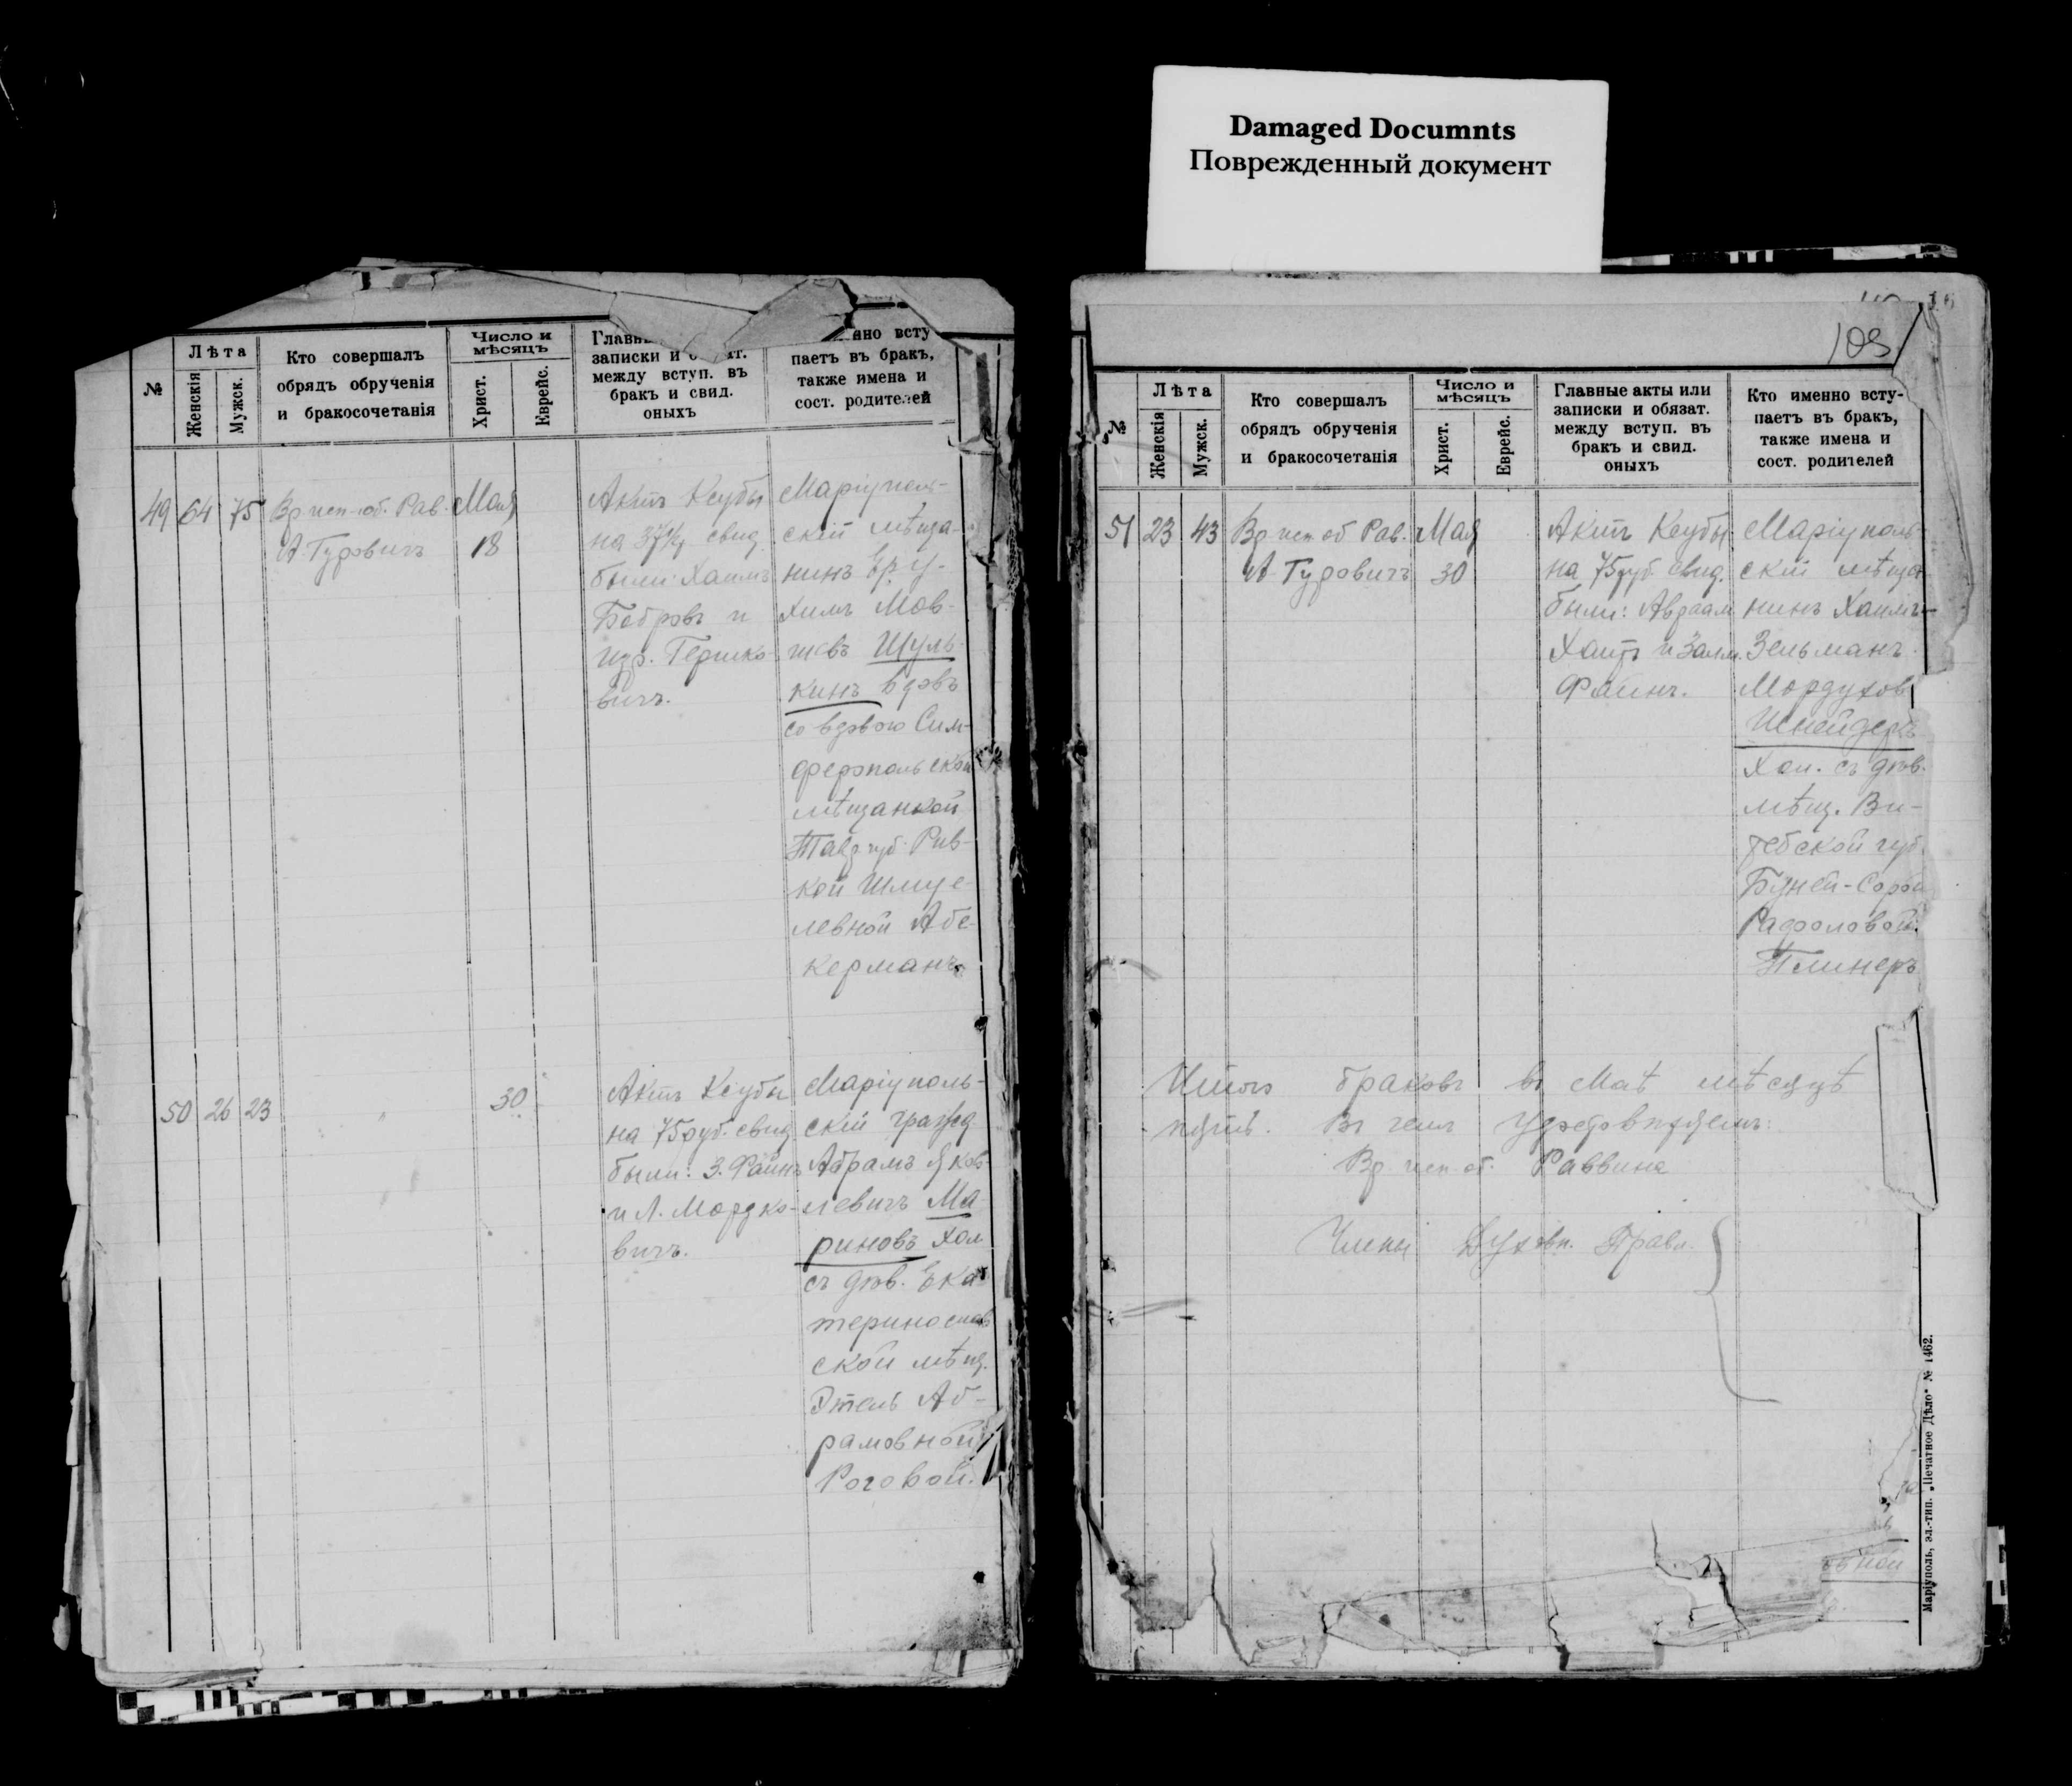 Damaged Documnts
Поврежденный документ
№
Лѣта
Женскія
Мужск.
Кто совершалъ
обрядъ обрученія
и бракосочетанія
Число и
мѣсяцъ
Христ.
Еврейс.
записки и
между вступ. въ
бракъ и свид.
оныхъ
паетъ въ бракъ,
также имена и
сост. родителей
49 64 75
Вр исп. об. Рав.
А. Гуровичъ
Мая
18
Актъ Ксубы
на 37½ свид.
были: Хаимъ
Бобровъ и
изр. Гершко-
вичъ.
Маріуполь-
скій мѣща-
нинъ Еру-
химъ Мов-
шевъ Шуль-
кинъ вдовъ
со вдовою Сим-
феропольской
мѣщанкой
Тавр. губ. Рив-
кой Шмуе-
левной Абе-
керманъ.
50 26 23
"
30
Актъ Ксубы
на 75 руб. свид
были: З. Файнъ
и Л. Мордко-
вичъ.
Маріуполь-
скій гражд
Абрамъ Яков-
левичъ Ма-
риновъ хол
съ дѣв. Ека-
теринослав
ской мѣщ.
Этель Аб-
рамовной
Роговой.
103
№
Лѣта
Женскія
Мужск.
Кто совершалъ
обрядъ обрученія
и бракосочетанія
Число и
мѣсяцъ
Христ.
Еврейс.
Главные акты или
записки и обязат.
между вступ. въ
бракъ и свид.
оныхъ
Кто именно всту-
паетъ въ бракъ,
также имена и
сост. родителей
51 23 43
Вр исп об Рав.
А. Гуровичъ
Мая
30
Актъ Ксубы
на 75 руб. свид.
были: Авраам
Хаитъ и Залм.
Файнъ.
Маріуполь-
скій мѣща-
нинъ Хаимъ-
Зельманъ
Мордухов
Шнейдеръ
Хол. съ дѣв.
мѣщ. Ви-
тебской губ.
Буней-Сорой
Рафоловой
Плинеръ
Итого браковъ въ Маѣ мѣсяцѣ
пять. Въ чемъ удостовѣряемъ:
Вр исп. об. Раввина
Члены Духовн. Правл.
Маріуполь, эл.-тип. „Печатное Дѣло" № 1462.